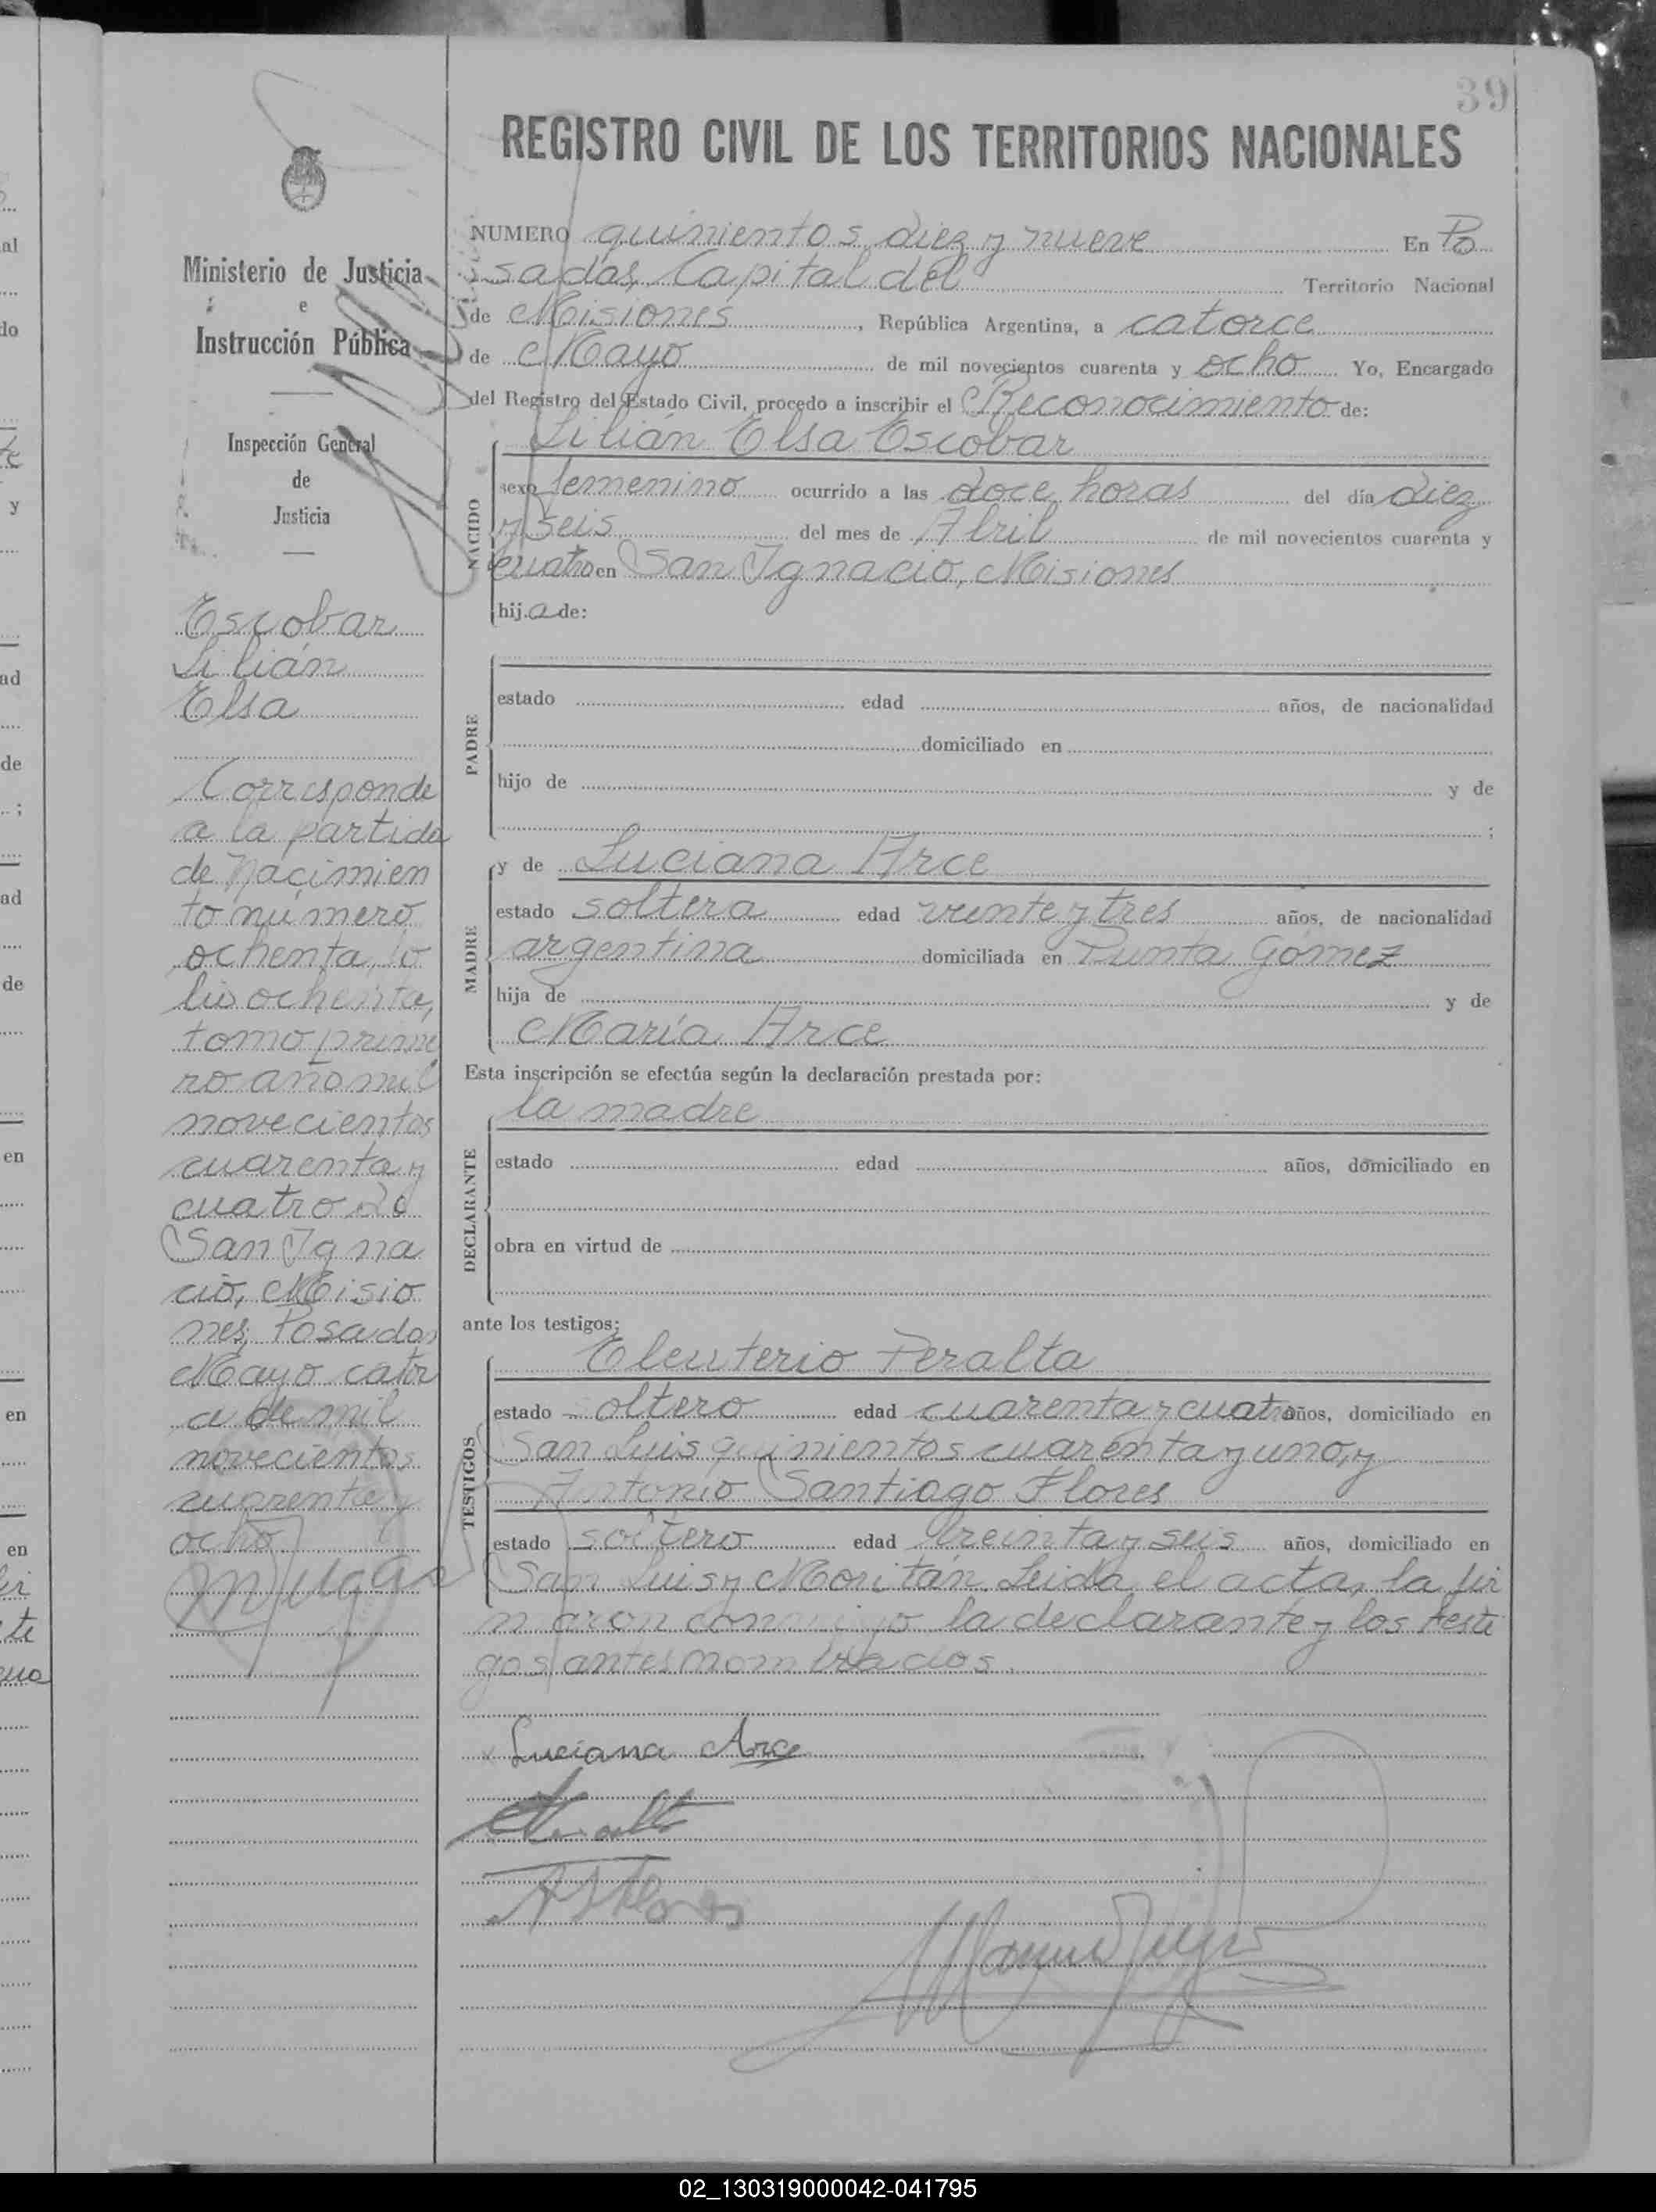 39
REGISTRO CIVIL DE LOS TERRITORIOS NACIONALES
Ministerio de Justicia
e
Instrucción Pública
Inspección General
de
Justicia
Escobar
Lilián
Elsa
Corresponde
a la partida
de Nacimien
to número
ochenta, fo
lio ochenta,
tomo prime
ro año mil
novecientos
cuarenta y
cuatro de
San Igna
cio, Misio
nes, Posadas
Mayo cator
ce de mil
novecientos
cuarenta y
ocho
NUMERO quinientos diez y nueve En Po
sadas, Capital del Territorio Nacional
de Misiones, República Argentina, a catorce
de Mayo de mil novecientos cuarenta y ocho Yo, Encargado
del Registro del Estado Civil, procedo a inscribir el Reconocimiento de:
NACIDO
Lilián Elsa Escobar
sexo femenino ocurrido a las doce horas del día diez
y seis del mes de Abril de mil novecientos cuarenta y
cuatro en San Ignacio, Misiones
hija de:
PADRE
estado edad años, de nacionalidad
domiciliado en
hijo de y de
;
MADRE
y de Luciana Arce
estado soltera edad veinte y tres años, de nacionalidad
argentina domiciliada en Punta Gómez
hija de y de
María Arce
Esta inscripción se efectúa según la declaración prestada por:
DECLARANTE
la madre
estado edad años, domiciliado en
obra en virtud de
ante los testigos:
TESTIGOS
Eleuterio Peralta
estado soltero edad cuarenta y cuatro años, domiciliado en
San Luis quinientos cuarenta y uno, y
Antonio Santiago Flores
estado soltero edad treinta y seis años, domiciliado en
San Luis y Moritán. Leida el acta, la fir
maron conmigo la declarante y los testi
gos antes nombrados.
Luciana Arce
02_130319000042-041795